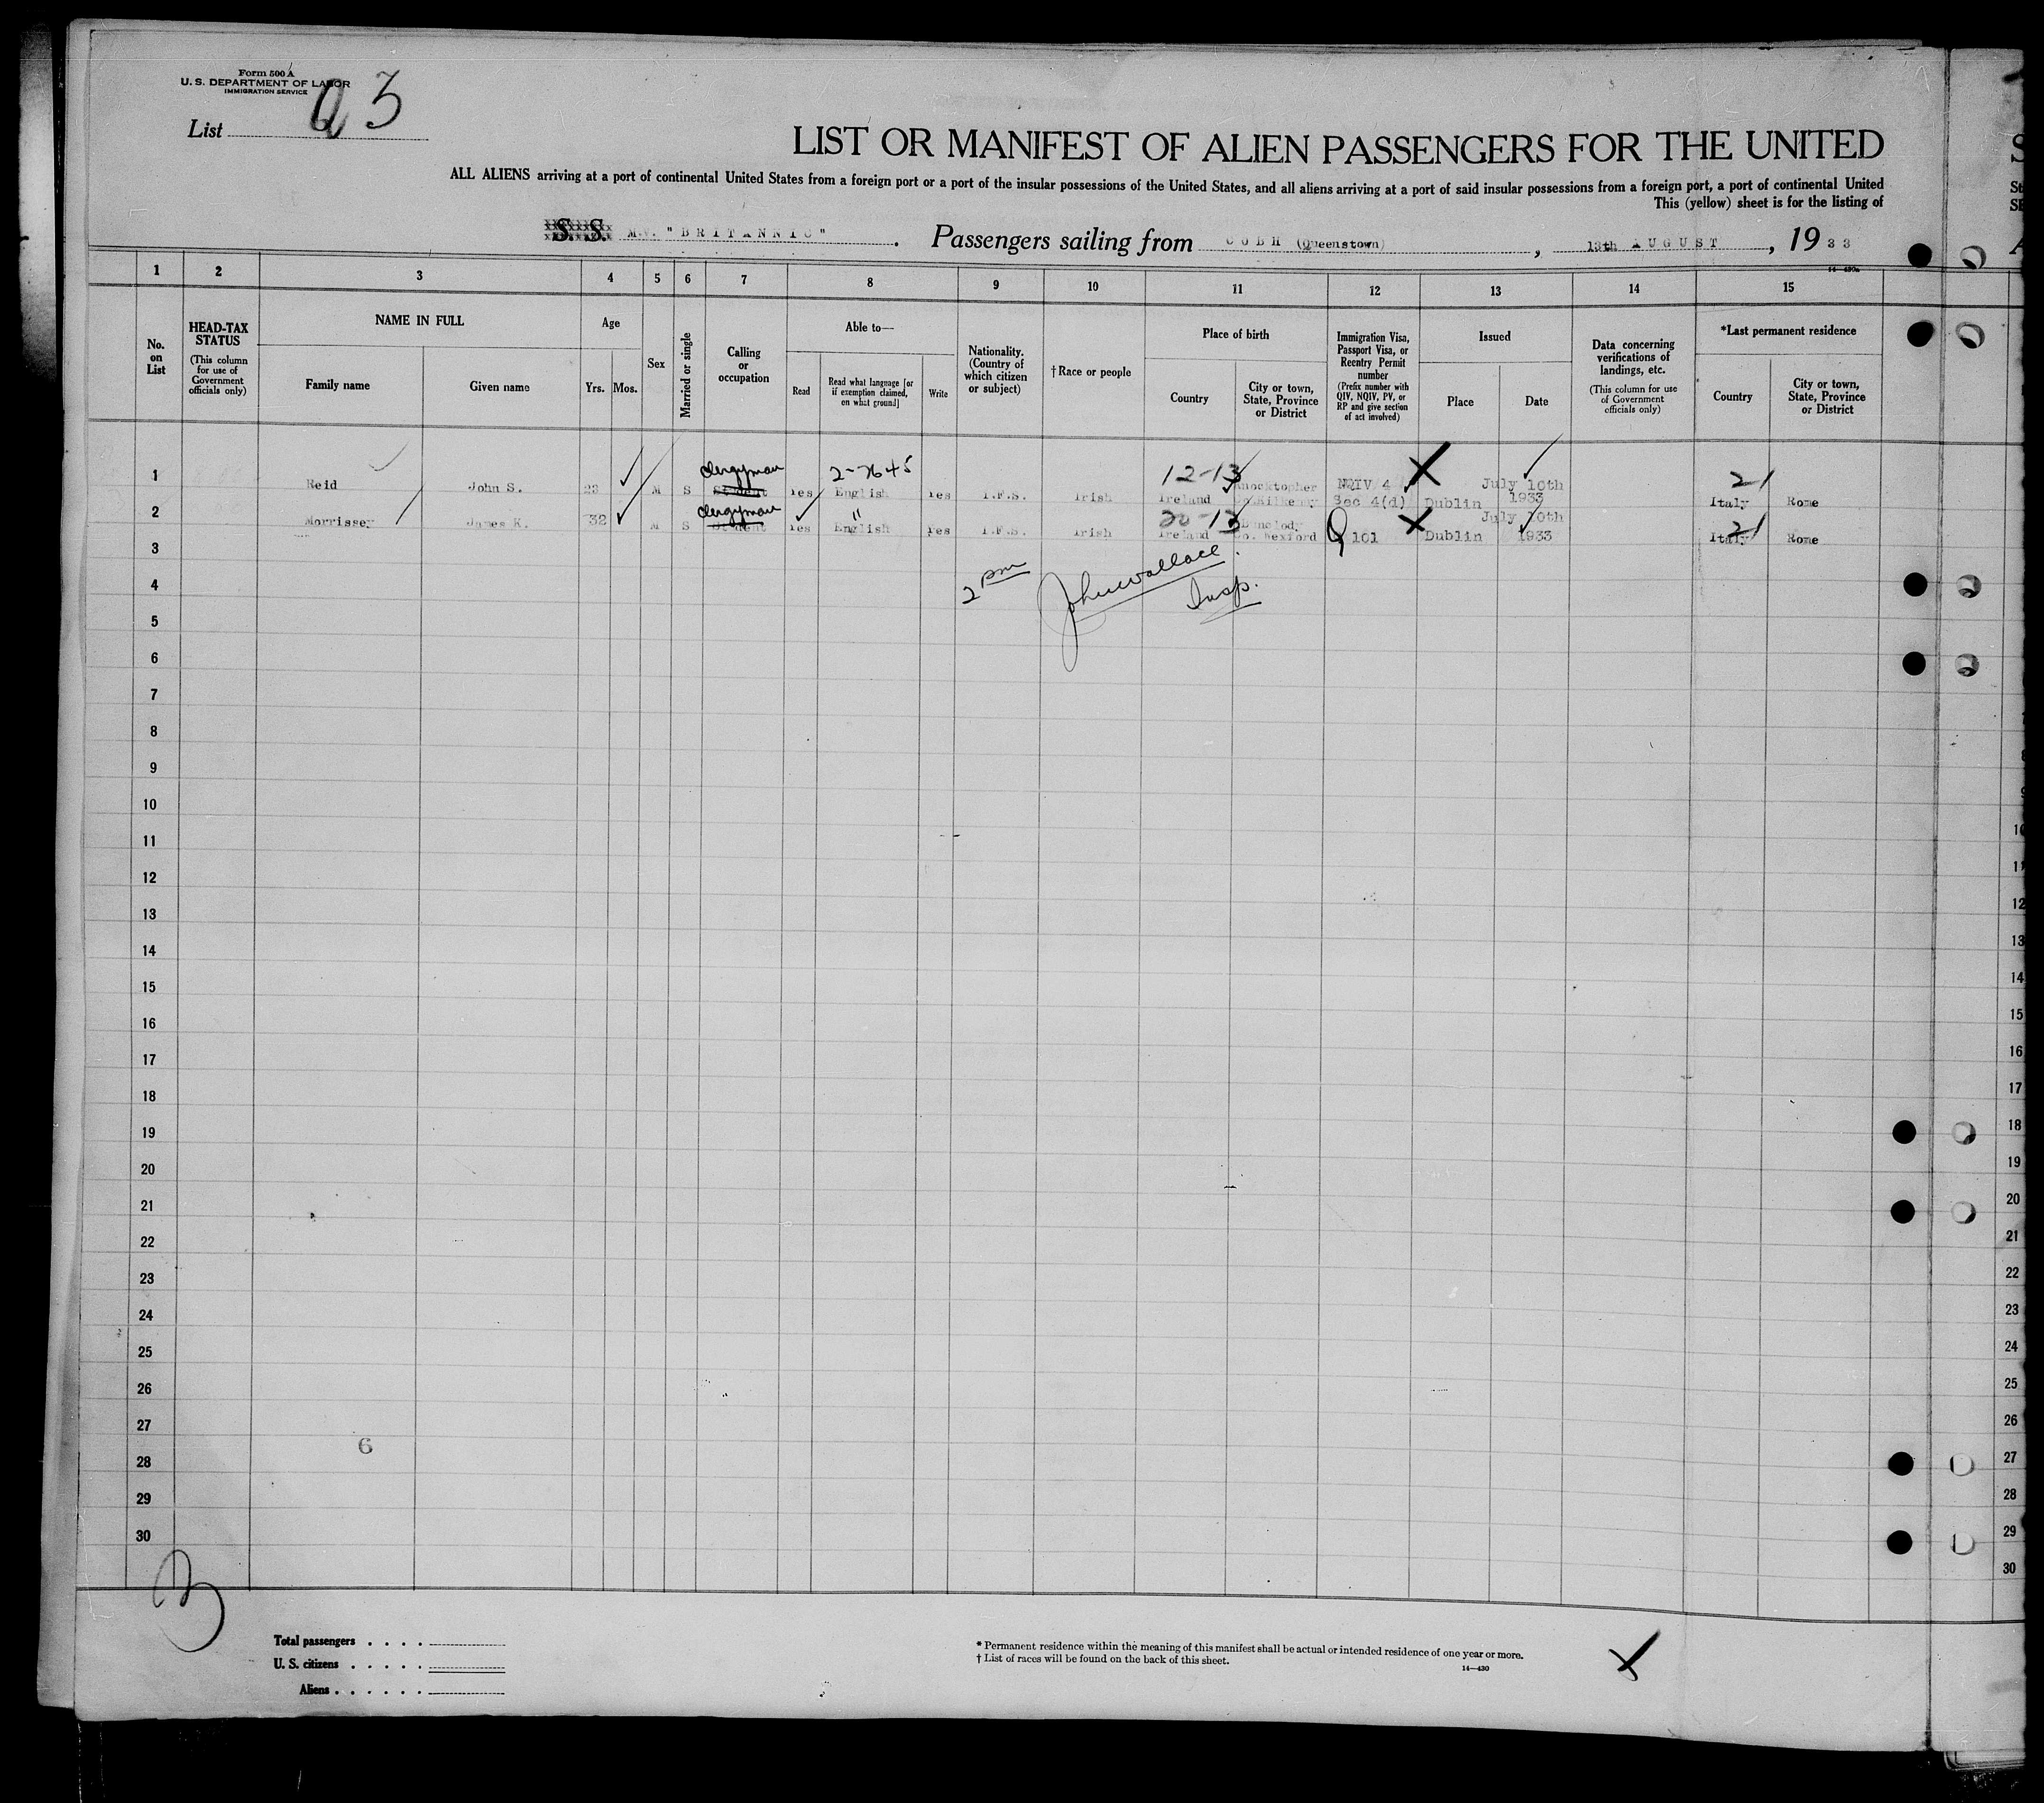 Form 500 A
U. S. DEPARTMENT OF LABOR
IMMIGRATION SERVICE
List 93
LIST OR MANIFEST OF ALIEN PASSENGERS FOR THE UNITED
ALL ALIENS arriving at a port of continental United States from a foreign port or a port of the insular possessions of the United States, and all aliens arriving at a port of said insular possessions from a foreign port, a port of continental United
This (yellow) sheet is for the listing of
S. S. M.V. "BRITANNIC" . Passengers sailing from COBH (Queenstown) , 13th AUGUST , 1933
14—430a
1 2 3 4 5 6 7 8 9 10 11 12 13 14 15
No. on List
HEAD-TAX STATUS
(This column for use of Government officials only)
NAME IN FULL
Family name
Given name
Age
Yrs.
Mos.
Sex
Married or single
Calling or occupation
Able to—
Read
Read what language [or if exemption claimed, on what ground]
Write
Nationality. (Country of which citizen or subject)
† Race or people
Place of birth
Country
City or town, State, Province or District
Immigration Visa, Passport Visa, or Reentry Permit number
(Prefix number with QIV, NQIV, PV, or RP and give section of act involved)
Issued
Place
Date
Data concerning verifications of landings, etc.
(This column for use of Government officials only)
*Last permanent residence
Country
City or town, State, Province or District
clergyman 2-7645 12-13 21
1 Reid John S. 23 M S Student Yes English Yes I.F.S. Irish Ireland Knocktopher Co.Kilkenny NQIV 4 Sec 4(d) Dublin July 10th 1933 Italy Rome
clergyman " 20-13 21
2 Morrissey James K. 32 M S Student Yes English Yes I.F.S. Irish Ireland Bunclody Co. Wexford Q 101 Dublin July 10th 1933 Italy Rome
3
2 pm John Wallace. Insp.
4
5
6
7
8
9
10
11
12
13
14
15
16
17
18
19
20
21
22
23
24
25
26
27
6
28
29
30
3
Total passengers . . . .
U. S. citizens . . . . .
Aliens . . . . . .
* Permanent residence within the meaning of this manifest shall be actual or intended residence of one year or more.
† List of races will be found on the back of this sheet.
14—430